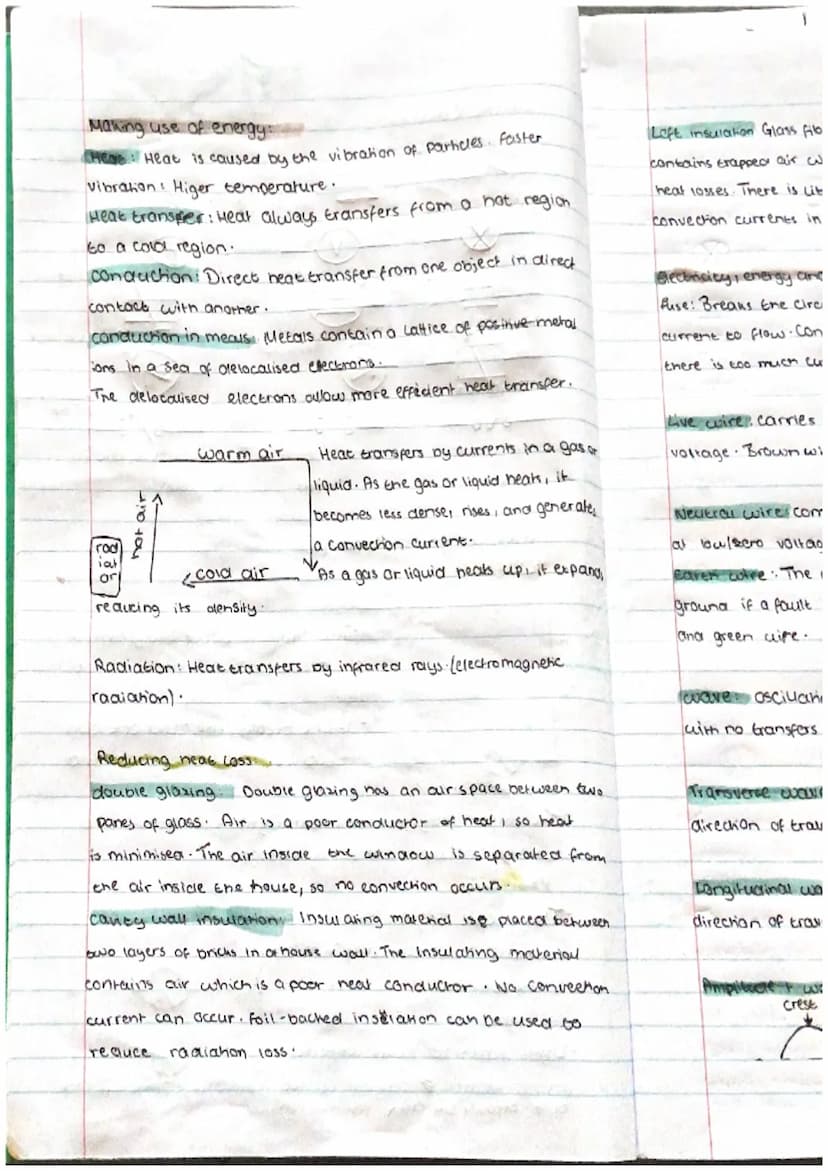 Making use of energy:
Heat: Heat is caused by the vibration of particles. Faster
vibration: Higer temperature.
Heat transfer: Heat always transfers from a hot region
to a cold region.
Conduction: Direct heat transfer from one object in direct
contact with another.
conduction in metals. Metals contain a lattice of positive metal
ions in a sea of delocalised electrons.
The delocalised electrons allow more efficient heat transfer.
warm air
Heat transfers by currents in a gas or
liquid. As the gas or liquid heats, it
becomes less dense, rises, and generates
a convection current.
hot air
rad
iat
or
cold air
As a gas or liquid heats up, it expand,
reducing its density.
Radiation: Heat transfers by infrared rays. (electromagnetic
radiation).
Reducing heat loss:
double glazing. Double glazing has an air space between two
panes of glass. Air is a poor conductor of heat, so heat
is minimised. The air inside the window is separated from
the air inside the house, so no convection occurs.
cavity wall insulation: Insulating material is placed between
two layers of bricks in a house wall. The insulating material
contains air which is a poor heat conductor. No convection
current can occur. Foil-backed insulation can be used to
reduce radiation loss.
1
Loft insulation Glass fib
contains trapped air w
heat losses. There is lit
convection currents in
Electricity, energy and
Fuse: Breaks the circ
current to flow. Con
there is too much cu
Live wire: carries
voltage. Brown wi
Neutral wire: com
at low/zero voltag
Earth wire: The
ground if a fault
and green wire.
wave: oscillati
with no transfers
Transverse wav
direction of trav
Longitudinal wa
direction of trav
Amplitude + wa
crest